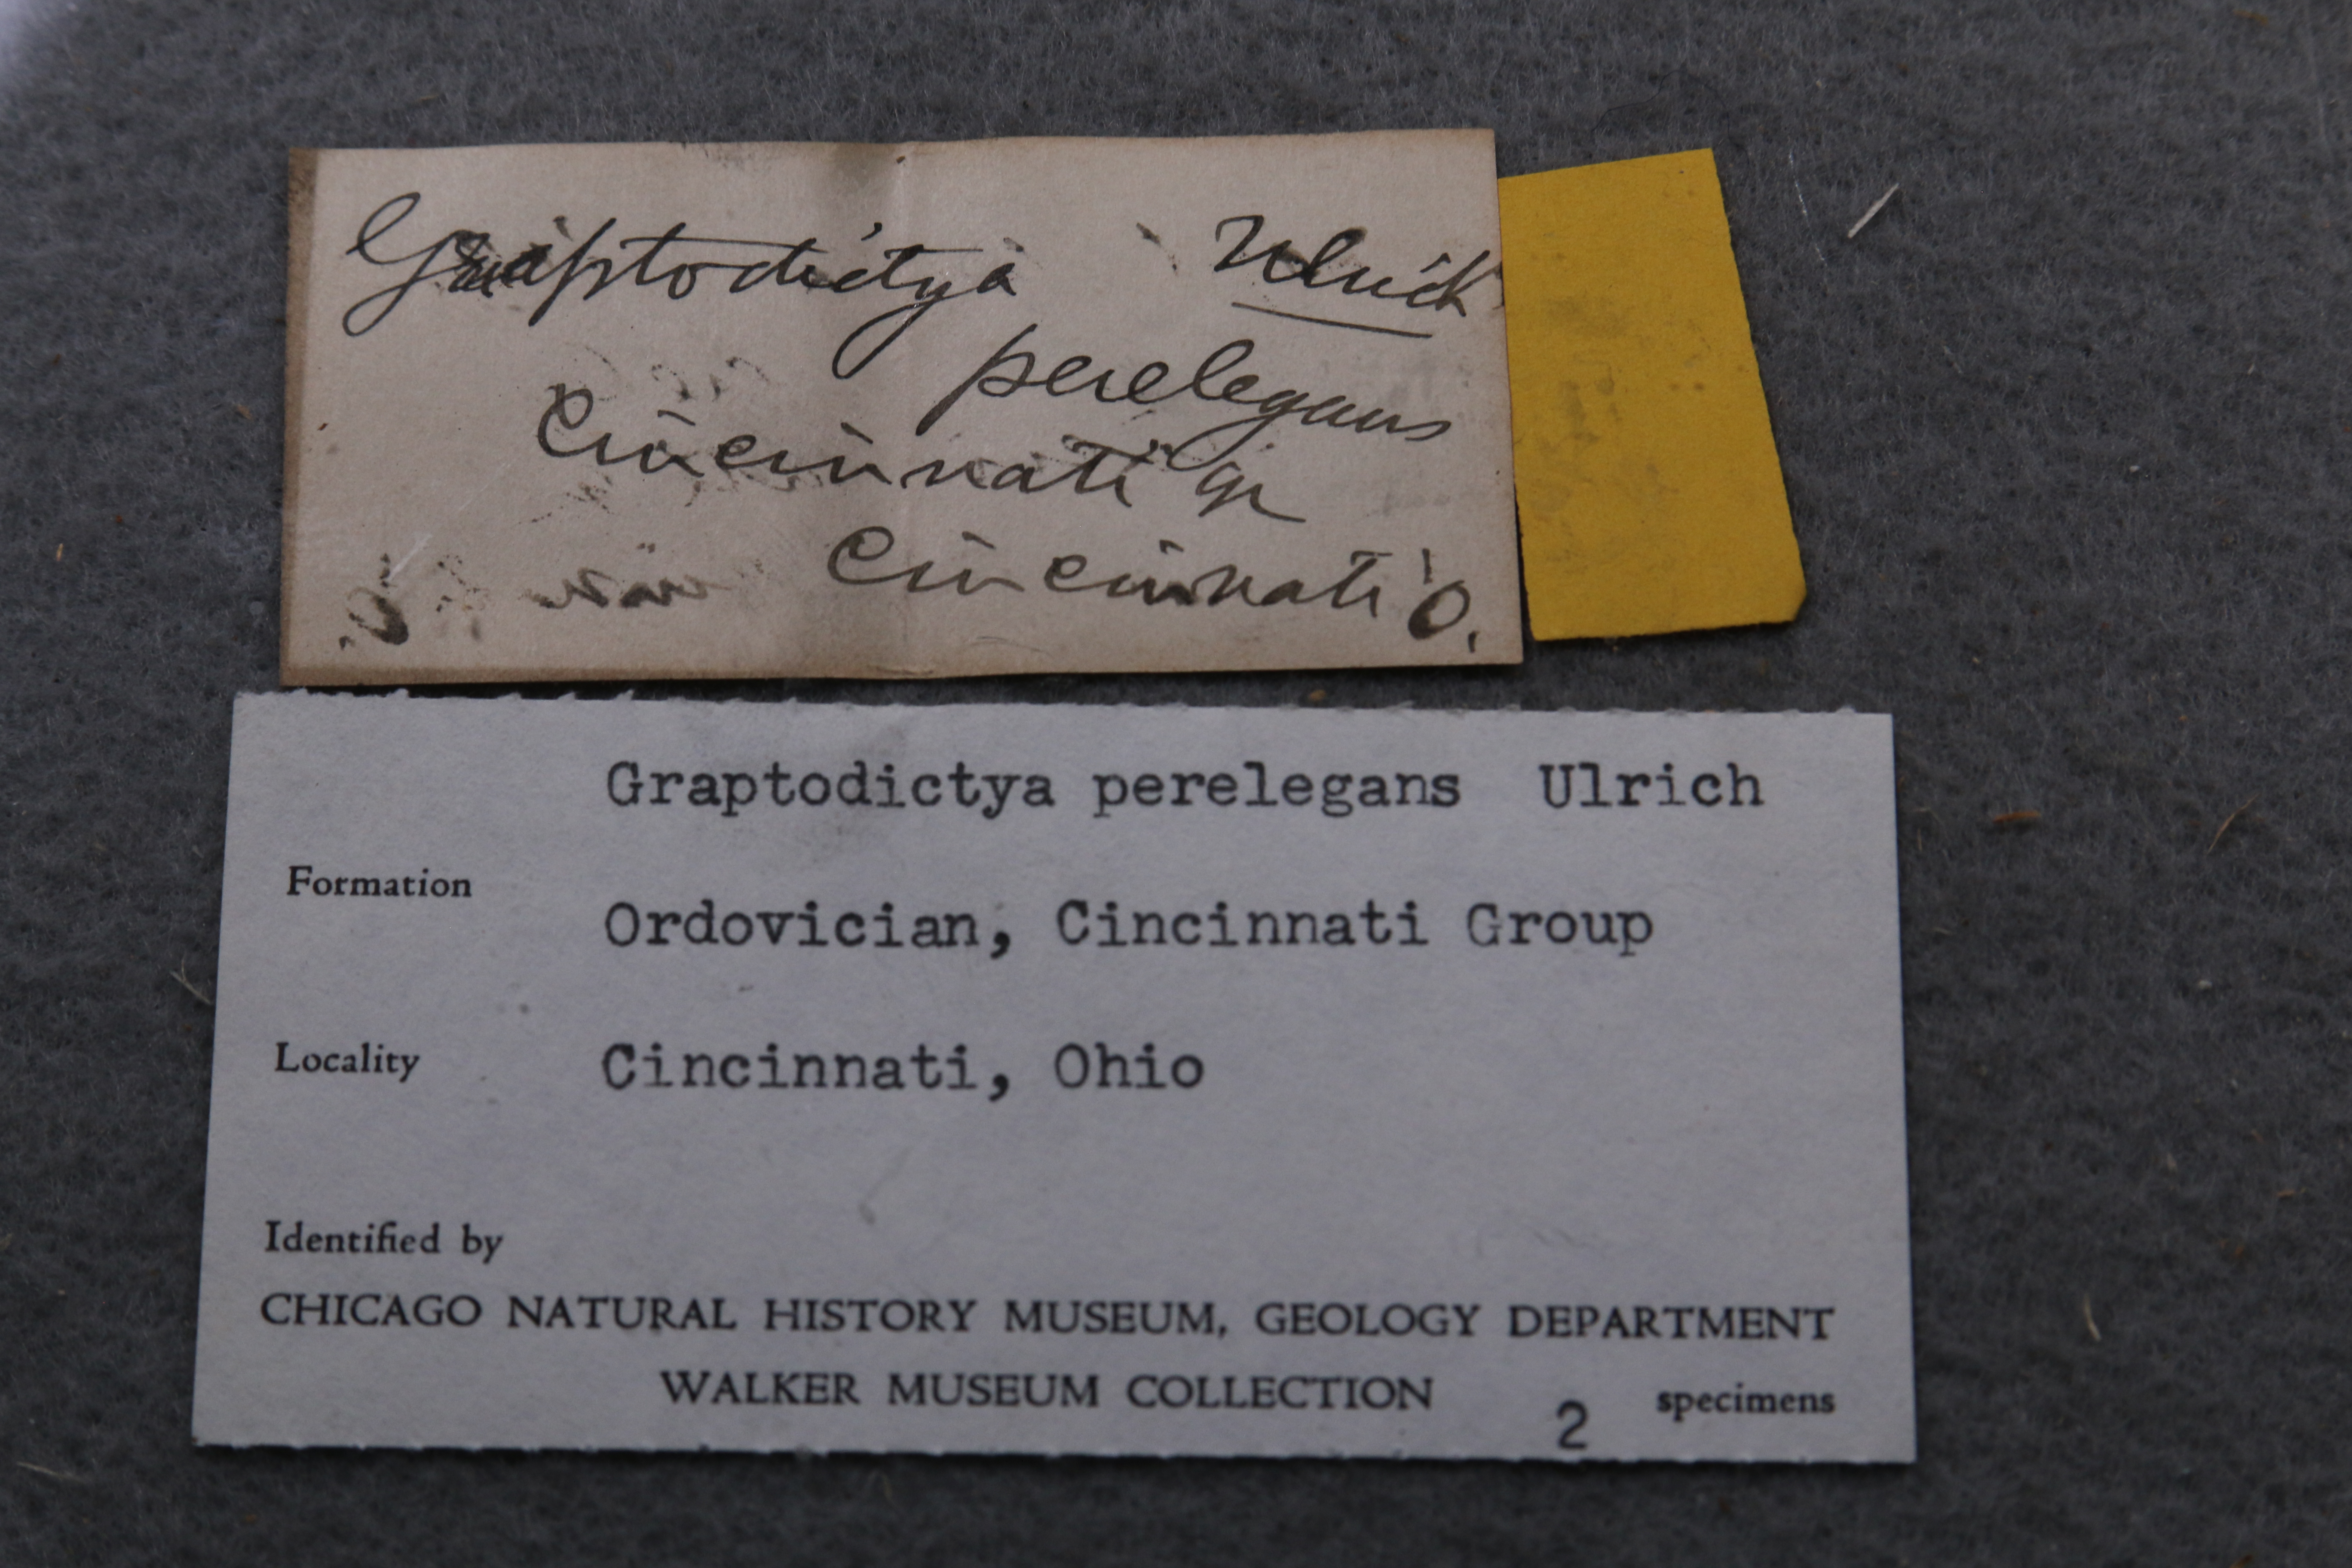 Graptodictya Ulrich
perelegans
Cincinnati gr
Cincinnati O.
Graptodictya perelegans Ulrich
Formation
Ordovician, Cincinnati Group
Locality
Cincinnati, Ohio
Identified by
CHICAGO NATURAL HISTORY MUSEUM, GEOLOGY DEPARTMENT
WALKER MUSEUM COLLECTION 2 specimens